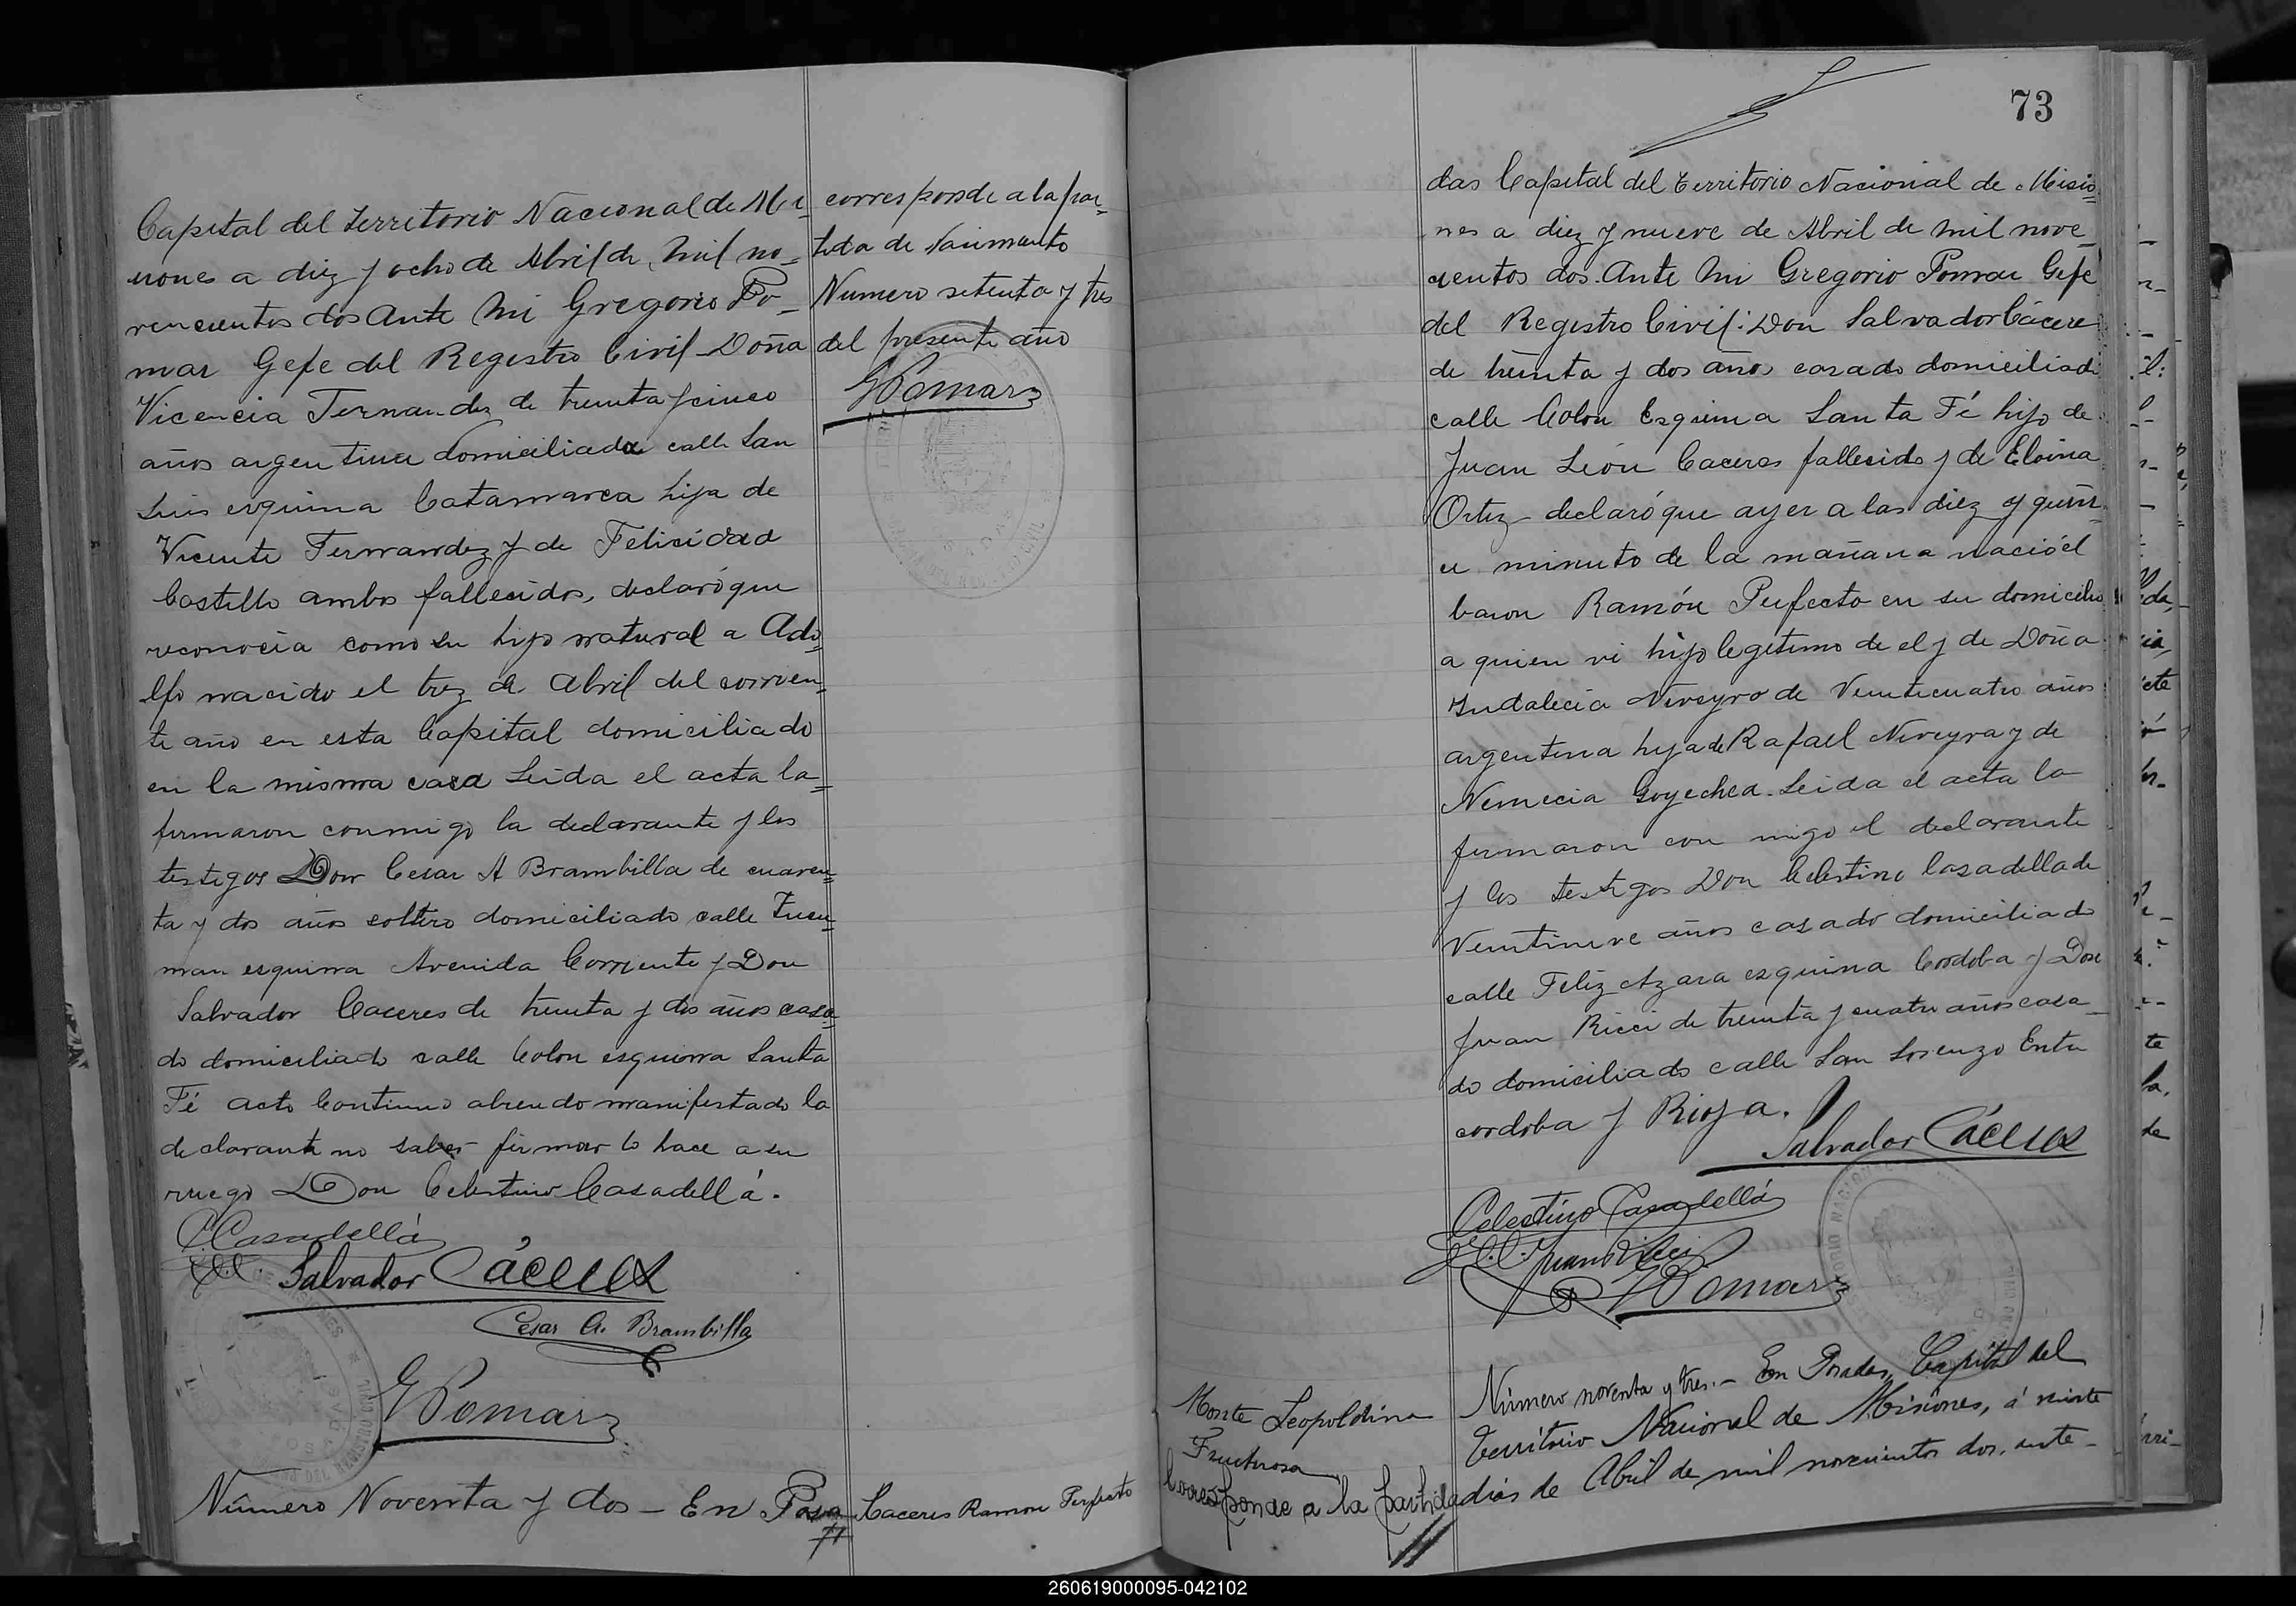 Capital del Territorio Nacional de Mi-
siones a diez y ocho de Abril de mil no-
vencientos dos Ante mi Gregorio Po-
mar Gefe del Registro Civil Doña
Vicencia Fernandez de treinta y cinco
años argentina domiciliada calle San
Luis esquina Catamarca hija de
Vicente Fernandez y de Felicidad
Castillo ambos fallecidos, declaró que
reconocia como su hijo natural a Ado=
lfo nacido el trez de Abril del corrien=
te año en esta Capital domiciliado
en la misma casa Leida el acta la=
firmaron conmigo la declarante y los
testigos Don Cesar A Brambilla de cuaren=
ta y dos años soltero domiciliado calle Tucu=
man esquina Avenida Corriente y Don
Salvador Caceres de treinta y dos años casa=
do domiciliado calle Colon esquina Santa
Fé acto Continuo abiendo manifestado la
declarante no saber firmar lo hace a su
ruego Don Celestino Casadellá.
C. Casadellá
Salvador Cáceres
Cesar A. Brambilla
G Pomar
Número Noventa y dos - En Posa
corresponde a la par=
tida de Nacimiento
Numero setenta y tres
del presente año
G Pomar
Caceres Ramon Perfecto
73
das Capital del Territorio Nacional de Misio=
nes a diez y nueve de Abril de mil nove-
cientos dos. Ante mi Gregorio Pomar Gefe
del Registro Civil: Don Salvador Cácere
de treinta y dos años casado domiciliado
calle Colon Esquina Santa Fé hijo de
Juan León Caceres fallecido y de Eloina
Ortiz declaró que ayer a las diez y quin
ce minuto de la mañana nació el
baron Ramón Perfecto en su domicilio
a quien vi hijo legitimo de el y de Doña
Indalecia Niveyro de Veinticuatro años
argentina hija de Rafael Niveyra y de
Nemecia Goyechea. Leida el acta la
firmaron con migo el declarante
y los testigos Don Celestino Casadella de
Veintinueve años casado domiciliado
calle Feliz Azara esquina Cordoba y Don
Juan Ricci de treinta y cuatro años casa_
do domiciliado calle San Lorenzo Entre
cordoba y Rioja.
Salvador Cáceres
Celestino Casadellá
Juan Ricci
G Pomar
Monte Leopoldina
Fructuosa
Corresponde a la partida
Número noventa y tres.- En Posadas, Capital del
Territorio Nacional de Misiones, á veinte
dias de Abril de mil novecientos dos, ante-
260619000095-042102